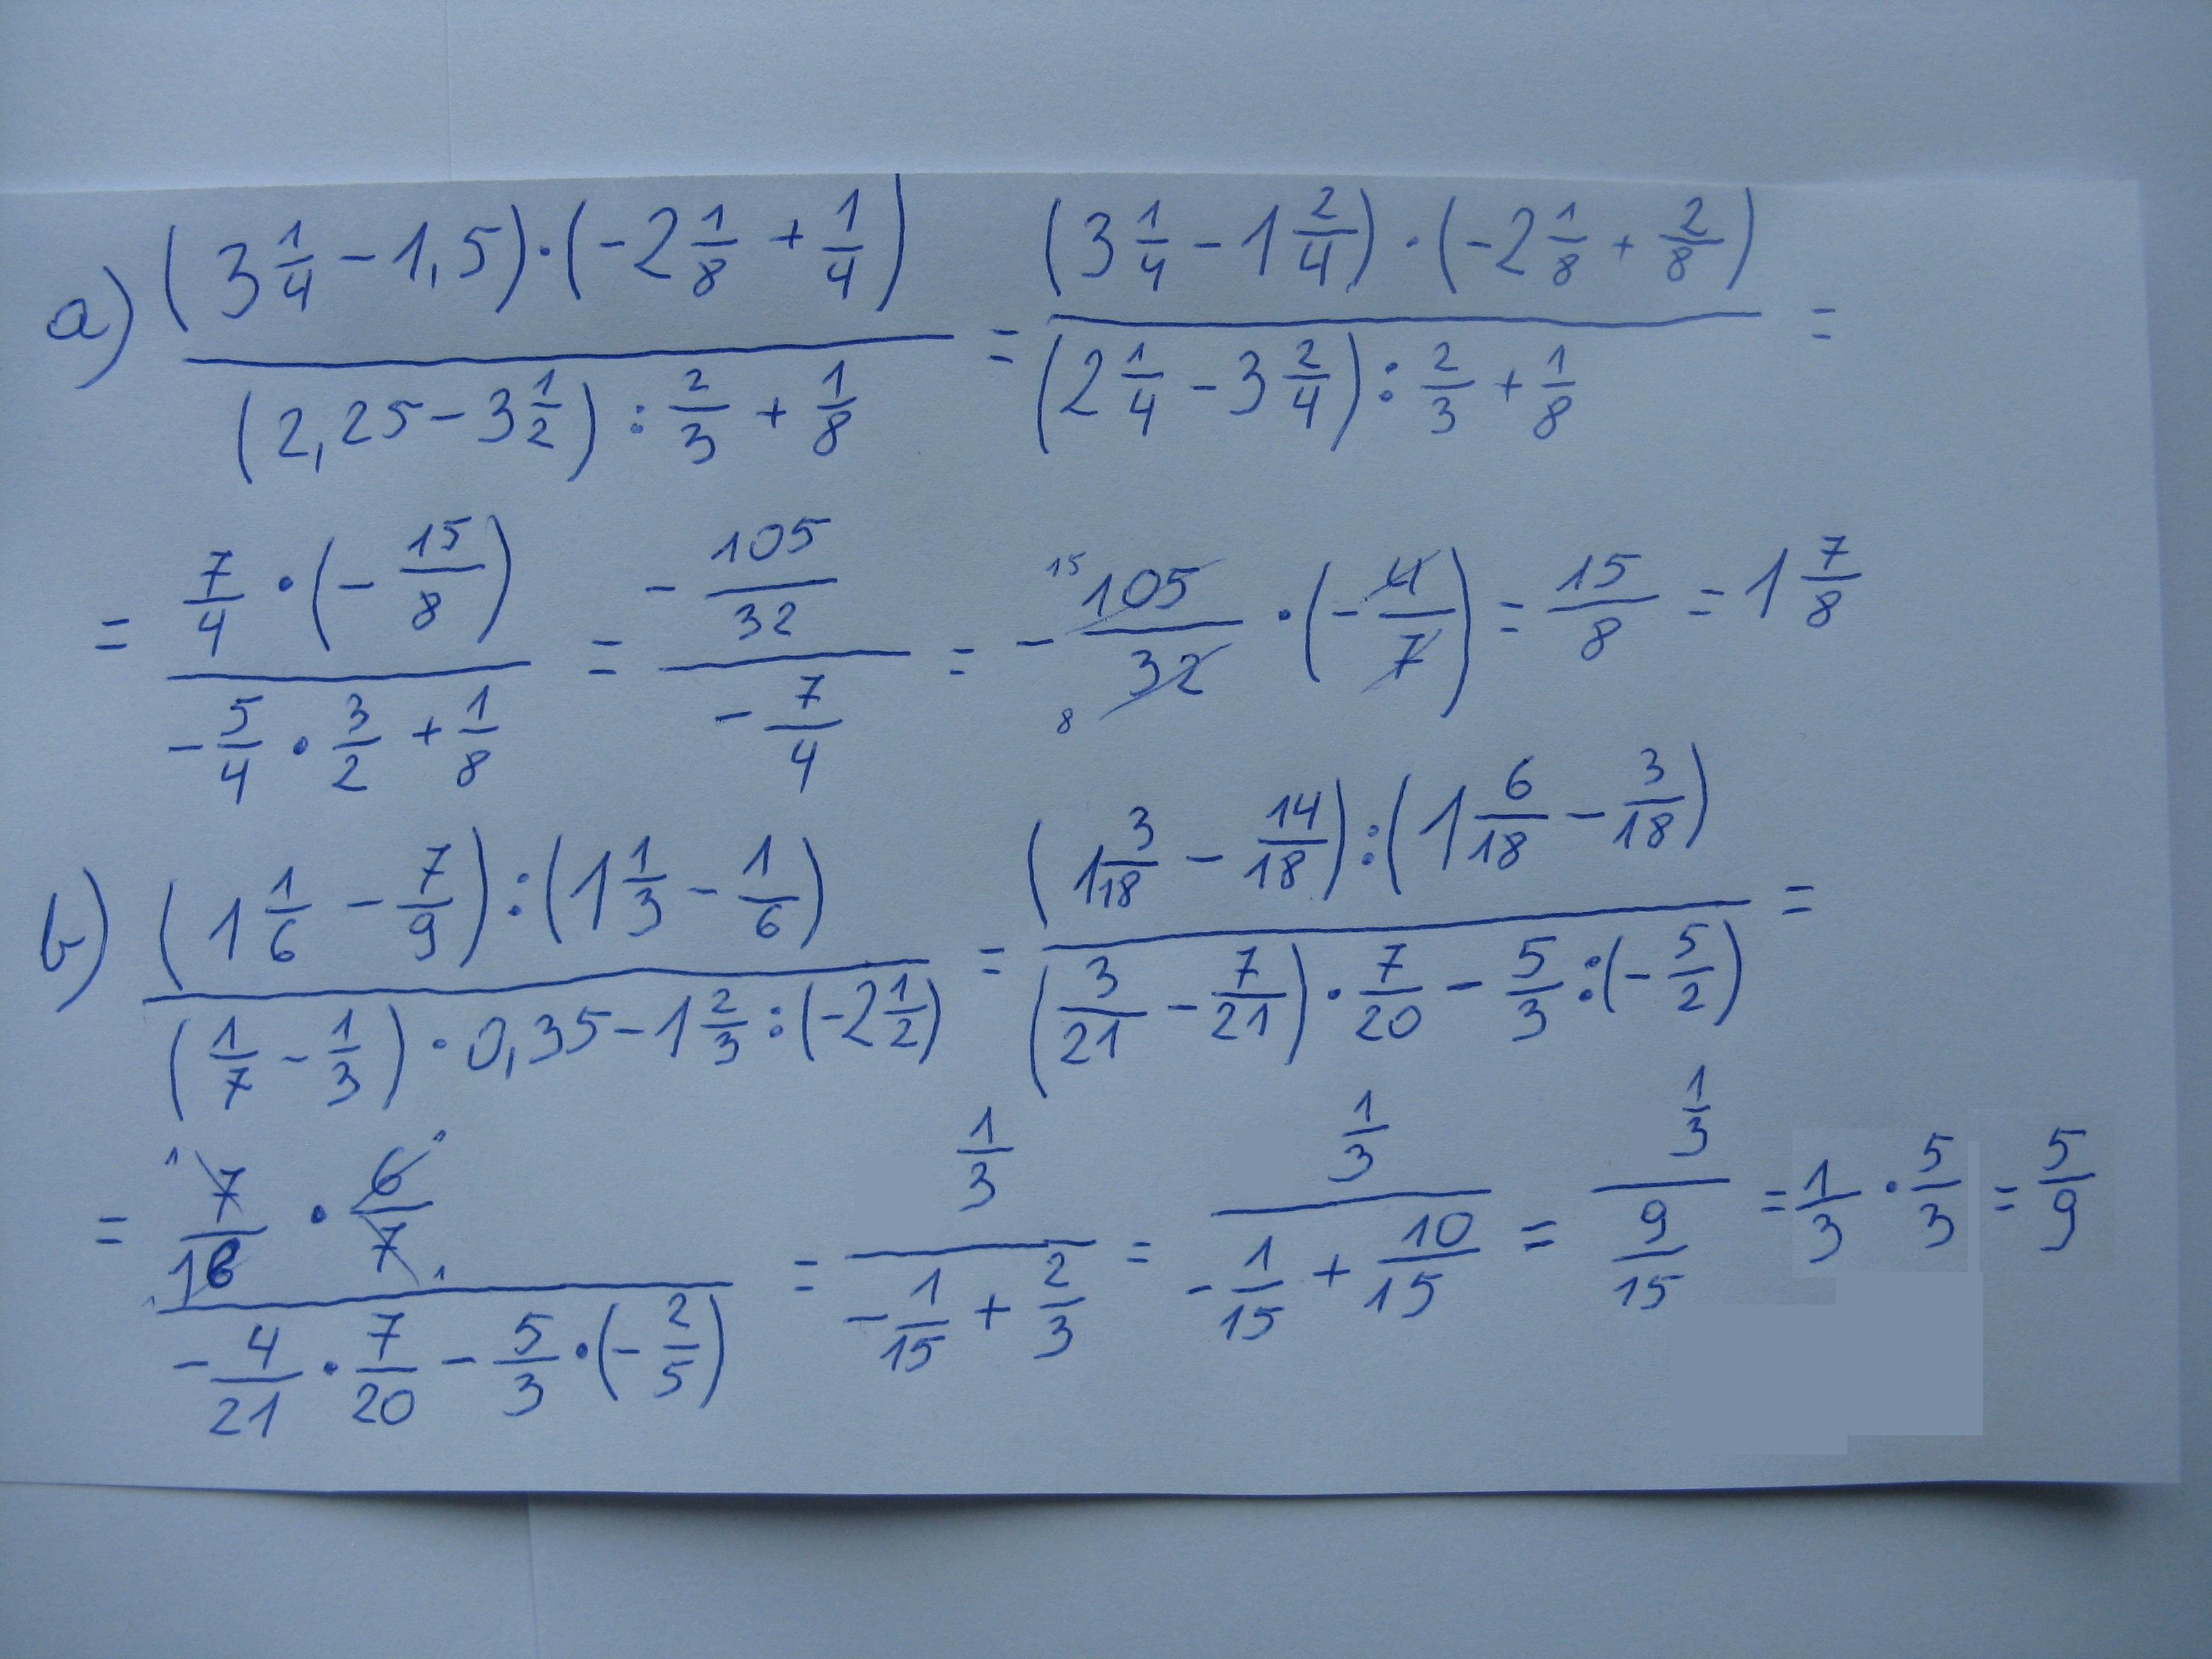 a) ((3 1/4 - 1,5) · (-2 1/8 + 1/4)) / ((2,25 - 3 1/2) : 2/3 + 1/8) = ((3 1/4 - 1 2/4) · (-2 1/8 + 2/8)) / ((2 1/4 - 3 2/4) : 2/3 + 1/8) =
= (7/4 · (-15/8)) / (-5/4 · 3/2 + 1/8) = (-105/32) / (-7/4) = - 15 105/32 8 · (-4/7) = 15/8 = 1 7/8
b) ((1 1/6 - 7/9) : (1 1/3 - 1/6)) / ((1/7 - 1/3) · 0,35 - 1 2/3 : (-2 1/2)) = ((1 3/18 - 14/18) : (1 6/18 - 3/18)) / ((3/21 - 7/21) · 7/20 - 5/3 : (-5/2)) =
= (1 7/18 · 6/7 1) / (-4/21 · 7/20 - 5/3 · (-2/5)) = (1/3) / (-1/15 + 2/3) = (1/3) / (-1/15 + 10/15) = (1/3) / (9/15) = 1/3 · 5/3 = 5/9